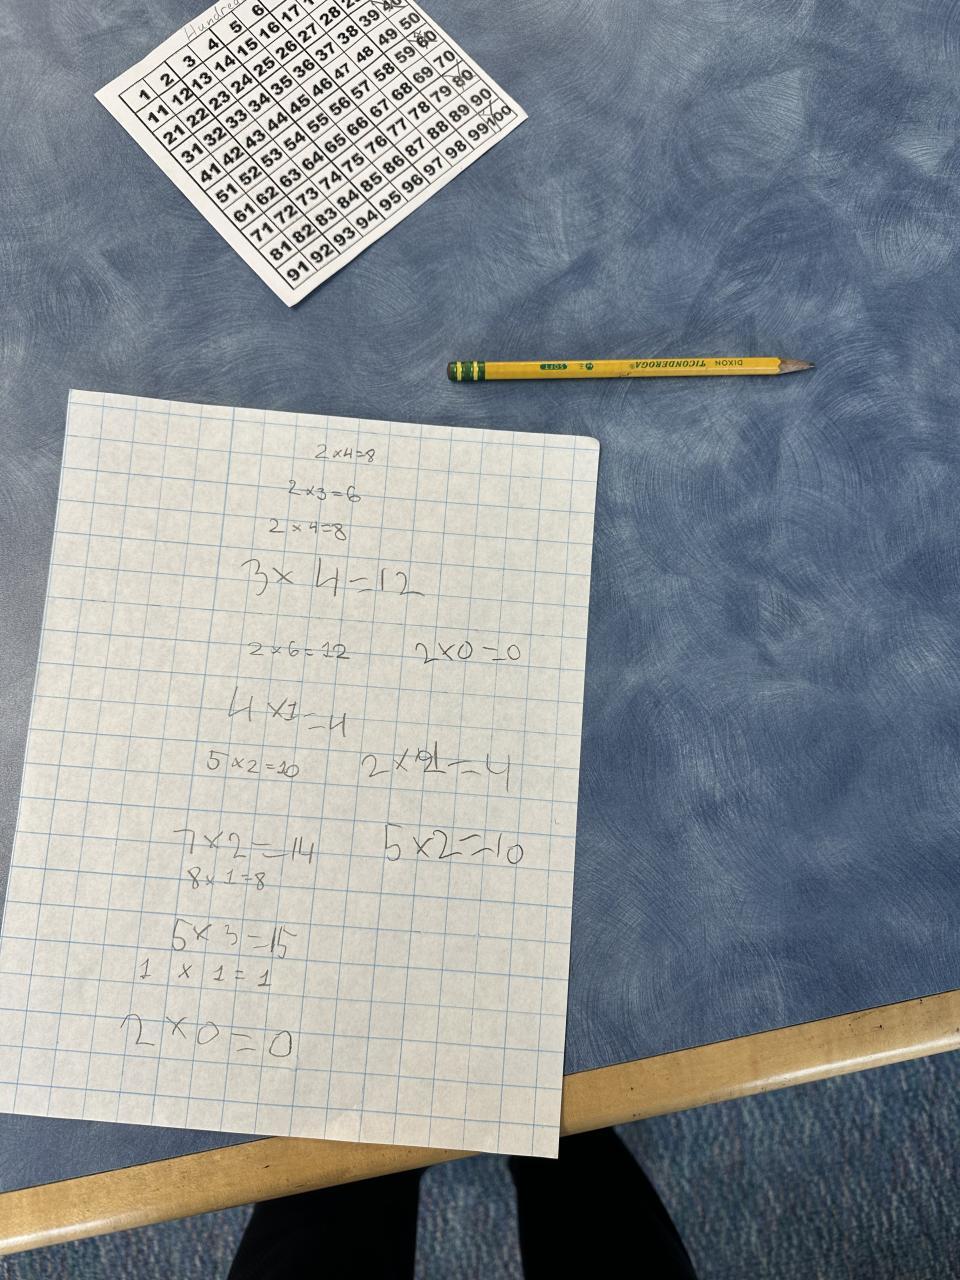 Hundre
1 2 3 4 5 6
11 12 13 14 15 16 17
21 22 23 24 25 26 27 28
31 32 33 34 35 36 37 38 39 40
41 42 43 44 45 46 47 48 49 50
51 52 53 54 55 56 57 58 59 60
61 62 63 64 65 66 67 68 69 70
71 72 73 74 75 76 77 78 79 80
81 82 83 84 85 86 87 88 89 90
91 92 93 94 95 96 97 98 99 100
DIXON TICONDEROGA® 2 HB SOFT
2 x 4 = 8
2 x 3 = 6
2 x 4 = 8
3 x 4 = 12
2 x 6 = 12 2 x 0 = 0
4 x 1 = 4
5 x 2 = 10 2 x 2 = 4
7 x 2 = 14 5 x 2 = 10
8 x 1 = 8
5 x 3 = 15
1 x 1 = 1
2 x 0 = 0